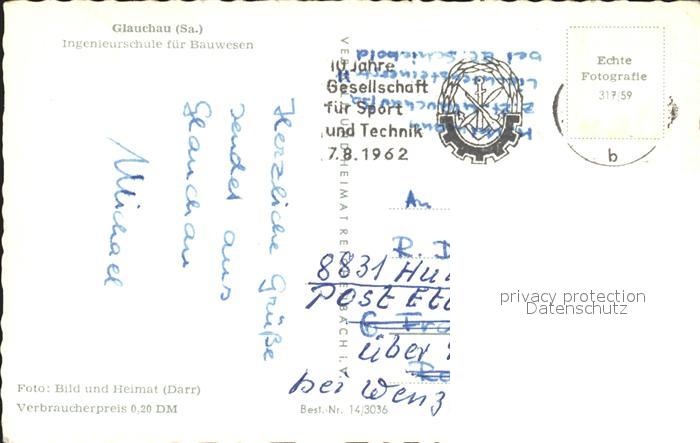 Glauchau (Sa.)
Ingenieurschule für Bauwesen
10 Jahre
Gesellschaft
für Sport
und Technik
7.8.1962
Echte
Fotografie
317/59
b
Herzliche Grüße
sendet aus
Glauchau
Michael
VERLAG BILD UND HEIMAT REICHENBACH i. V.
An
R. D
8831 Hu
Post Et
über
bei Wenz
privacy protection
Datenschutz
Foto: Bild und Heimat (Darr)
Verbraucherpreis 0,20 DM
Best.-Nr. 14/3036